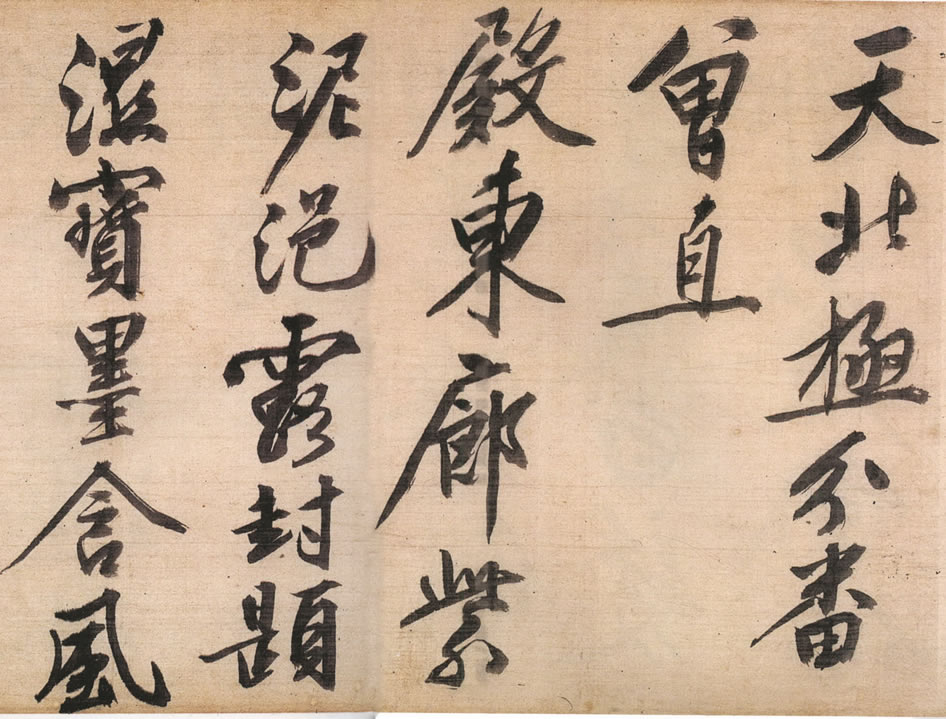 天北極分番
曾直
殿東廊紫
泥浥露封題
濕寶墨含風